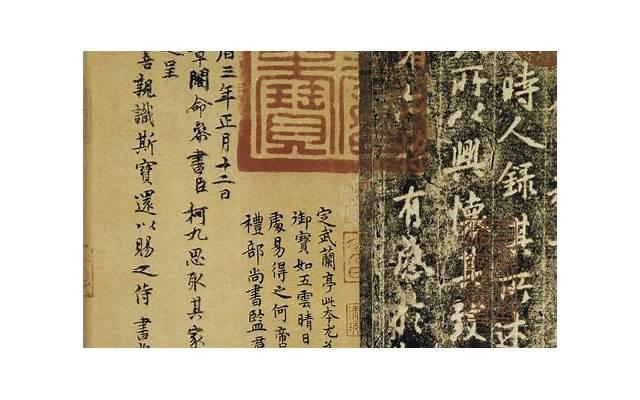 時人錄其所述
所以興懷其致
有感於
定武蘭亭此本尤
御寶如五雲晴日
處易得之何帝
禮部尚書監
寶
三年正月十二日
章閣命叅書臣柯九思取其家
之呈
善親識斯寶還以賜之侍書